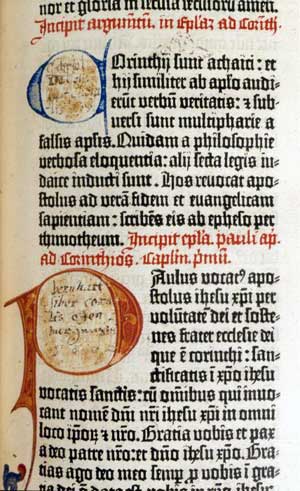 nor et gloria in secula seculorū amen.
Incipit argumentū in epistolā ad Corinth.
Corinthij sunt achaici: et
hij similiter ab aplo audie
rūt verbū veritatis: & sub
versi sunt multipharie a
falsis aplis. Quidam a philosophie
verbosa eloquentia: alij secta legis iu
daice inducti sunt. Hos revocat apo
stolus ad verā fidem et evangelicam
sapientiam: scribēs eis ab epheso per
thimotheum. Incipit epla pauli ap.
ad Corinthios. Caplm primū.
Paulus vocat᷒ apo
stolus ihesu xp̄i per
volūtatē dei et soste
nes frater ecclesie dei
que ē corinthi: san
ctificatis ī xp̄o ihesu
vocatis sanctis: cū omībus qui invo
cant nomē dn̄i nr̄i ihesu xp̄i in omni
loco ip̄oꝝ & nr̄o. Gratia vobis et pax
a deo patre nr̄o: et dn̄o ihesu xp̄o. Gra
tias ago deo meo semp̱ ꝓ vobis ī gra